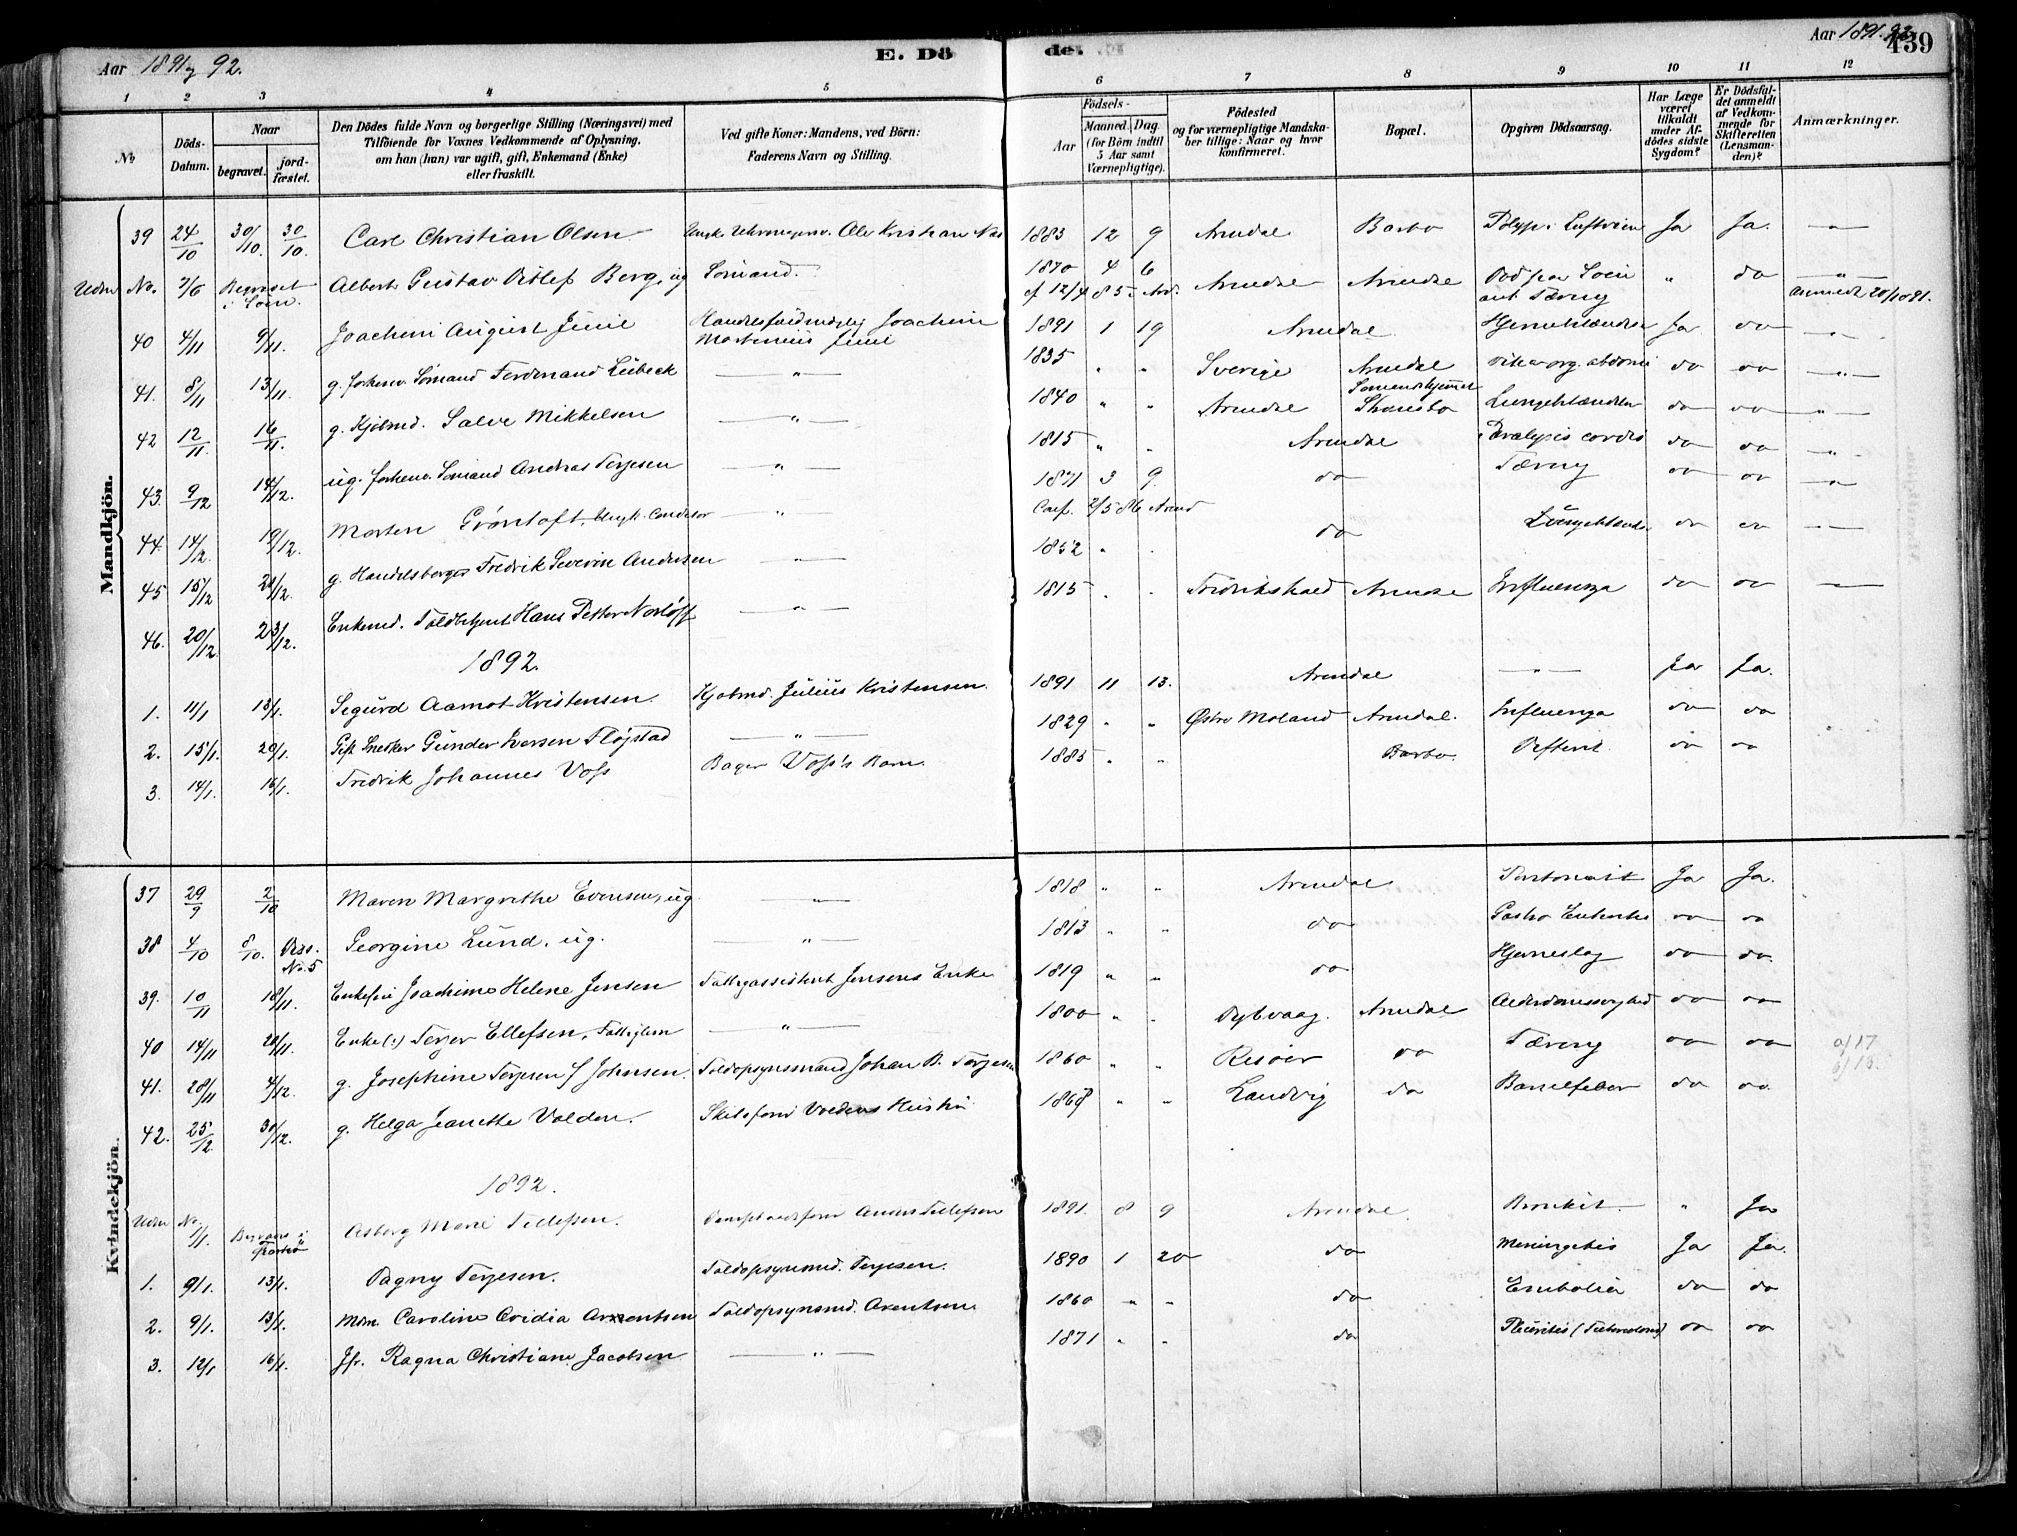 Aar 1891 92. E. Dö de. Aar 1891. 92. 439
1 2 3 4 5 6 7 8 9 10 11 12
No
Döds-Datum.
Naar
begravet.
jord-fæstet.
Den Dödes fulde Navn og borgerlige Stilling (Næringsvei) med
Tilföiende for Voxnes Vedkommende af Oplysning,
om han (hun) var ugift, gift, Enkemand (Enke)
eller fraskilt.
Ved gifte Koner: Mandens, ved Börn:
Faderens Navn og Stilling.
Födsels-
Aar
Maaned. Dag.
(for Börn indtil
5 Aar samt
Værnepligtige).
Födested
og for værnepligtige Mandska-
ber tillige: Naar og hvor
konfirmeret.
Bopæl.
Opgiven Dödsaarsag.
Har Læge
været
tilkaldt
under Af-
dödes sidste
Sygdom?
Er Dödsfal-
det anmeldt
af Vedkom-
mende for
Skifteretten
(Lensman-
den)?
Anmærkninger.
Mandkjön.
39 24/10 30/10. 30/10. Carl Christian Olsen Ole Kristian 1883 12 9 Arendal Barbo Polyp i Ja Ja. "
Uden No. 7/6 Begravet i Søen. Albert Gustav Ditlef Berg, ug Sømand. 1870 4 6 Arendal Arendal " do "
cf 12/4 85. Ard. Tæring Anmeldt 20/10 91.
40 4/11 9/11. Joachim August Juul Joachim Martinius Juul 1891 1 19 Arendal. Ja do "
41. 8/11 13/11. g. forhenv. Sømand Ferdinand Lübeck " 1835 " " Sverige Arendal do do "
42 12/11 16/11. g. Kjøbmd. Salve Mikkelsen " 1840 " " Arendal do do "
43. 9/12 14/12. ug. forhenv. Sømand Andreas Terjesen " 1815 " " Arendal Paralysis cordis do do "
44. 14/12. 19/12. Morten Grøntoft, " 1871 3 9. do Tæring do do "
Conf. 2/5 86 Arend
45 15/12 21/12. g. Handelsborger Fredrik Severin Andersen " 1852 " " do do do
46. 20/12. 23/12. Enkemd. Toldbetjent Hans Petter " 1815 " " Fredrikshald Arendal Influenza do do
1892.
1. 11/1 13/1. Sigurd Aamot Kristensen. Kjøbmd. Julius Kristensen. 1891 11 13. Arendal " Ja Ja.
2. 15/1. 20/1. Gift Snedker Gunder Iversen Fløistad " 1829 " " Østre Moland Arendal. Influenza do do
3. 14/1. 16/1. Fredrik Johannes Voss Bager Voss's Barn. 1885 " " Barbo. Difterit do do
Kvindekjön.
37 29/9 2/10 Maren Margrethe Evensen, ug. " 1818 " " Arendal Ja Ja.
38 4/10 8/10. Diss. No. 5 Georgine Lund, ug. " 1813 " " do do do
39. 10/11 18/11. Enkefru Joachime Helene Jensen Jensens Enke 1819 " " do Hjerneslag do do.
40 14/11 20/11. Enke(:) Terjer Ellefsen, Fattiglem " 1800 " " Dybvaag. Arendal do do
41. 28/11 4/12. g. Josephine Terjesen f Johnsen. Toldopsynsmand Johan B. Terjesen 1860 " " Risøer do Tæring do do a/17 b/13.
42. 25/12 30/12. g. Helga Jeanette Volden. Skibsfører Voldens Hustru 1868 " " Landvig do Barselfeber do do.
1892.
Uden No. 1/1. Asborg Marie Tellefsen. Tellefsen 1891. 8 9 Arendal. Bronkit. " Ja
1. 9/1. 13/1. Dagny Terjesen. Toldopsynsmd. Terjesen. 1890 1 20 do Meningitis Ja Ja.
2. 9/1. 13/1. Mdm. Caroline Ovidia Arentsen Toldopsynsmd. Arentsen 1860 " " do Embolia do do
3. 12/1 16/1. Jfr. Ragna Christiane Jacobsen " 1871 " " do Pleuritis do do